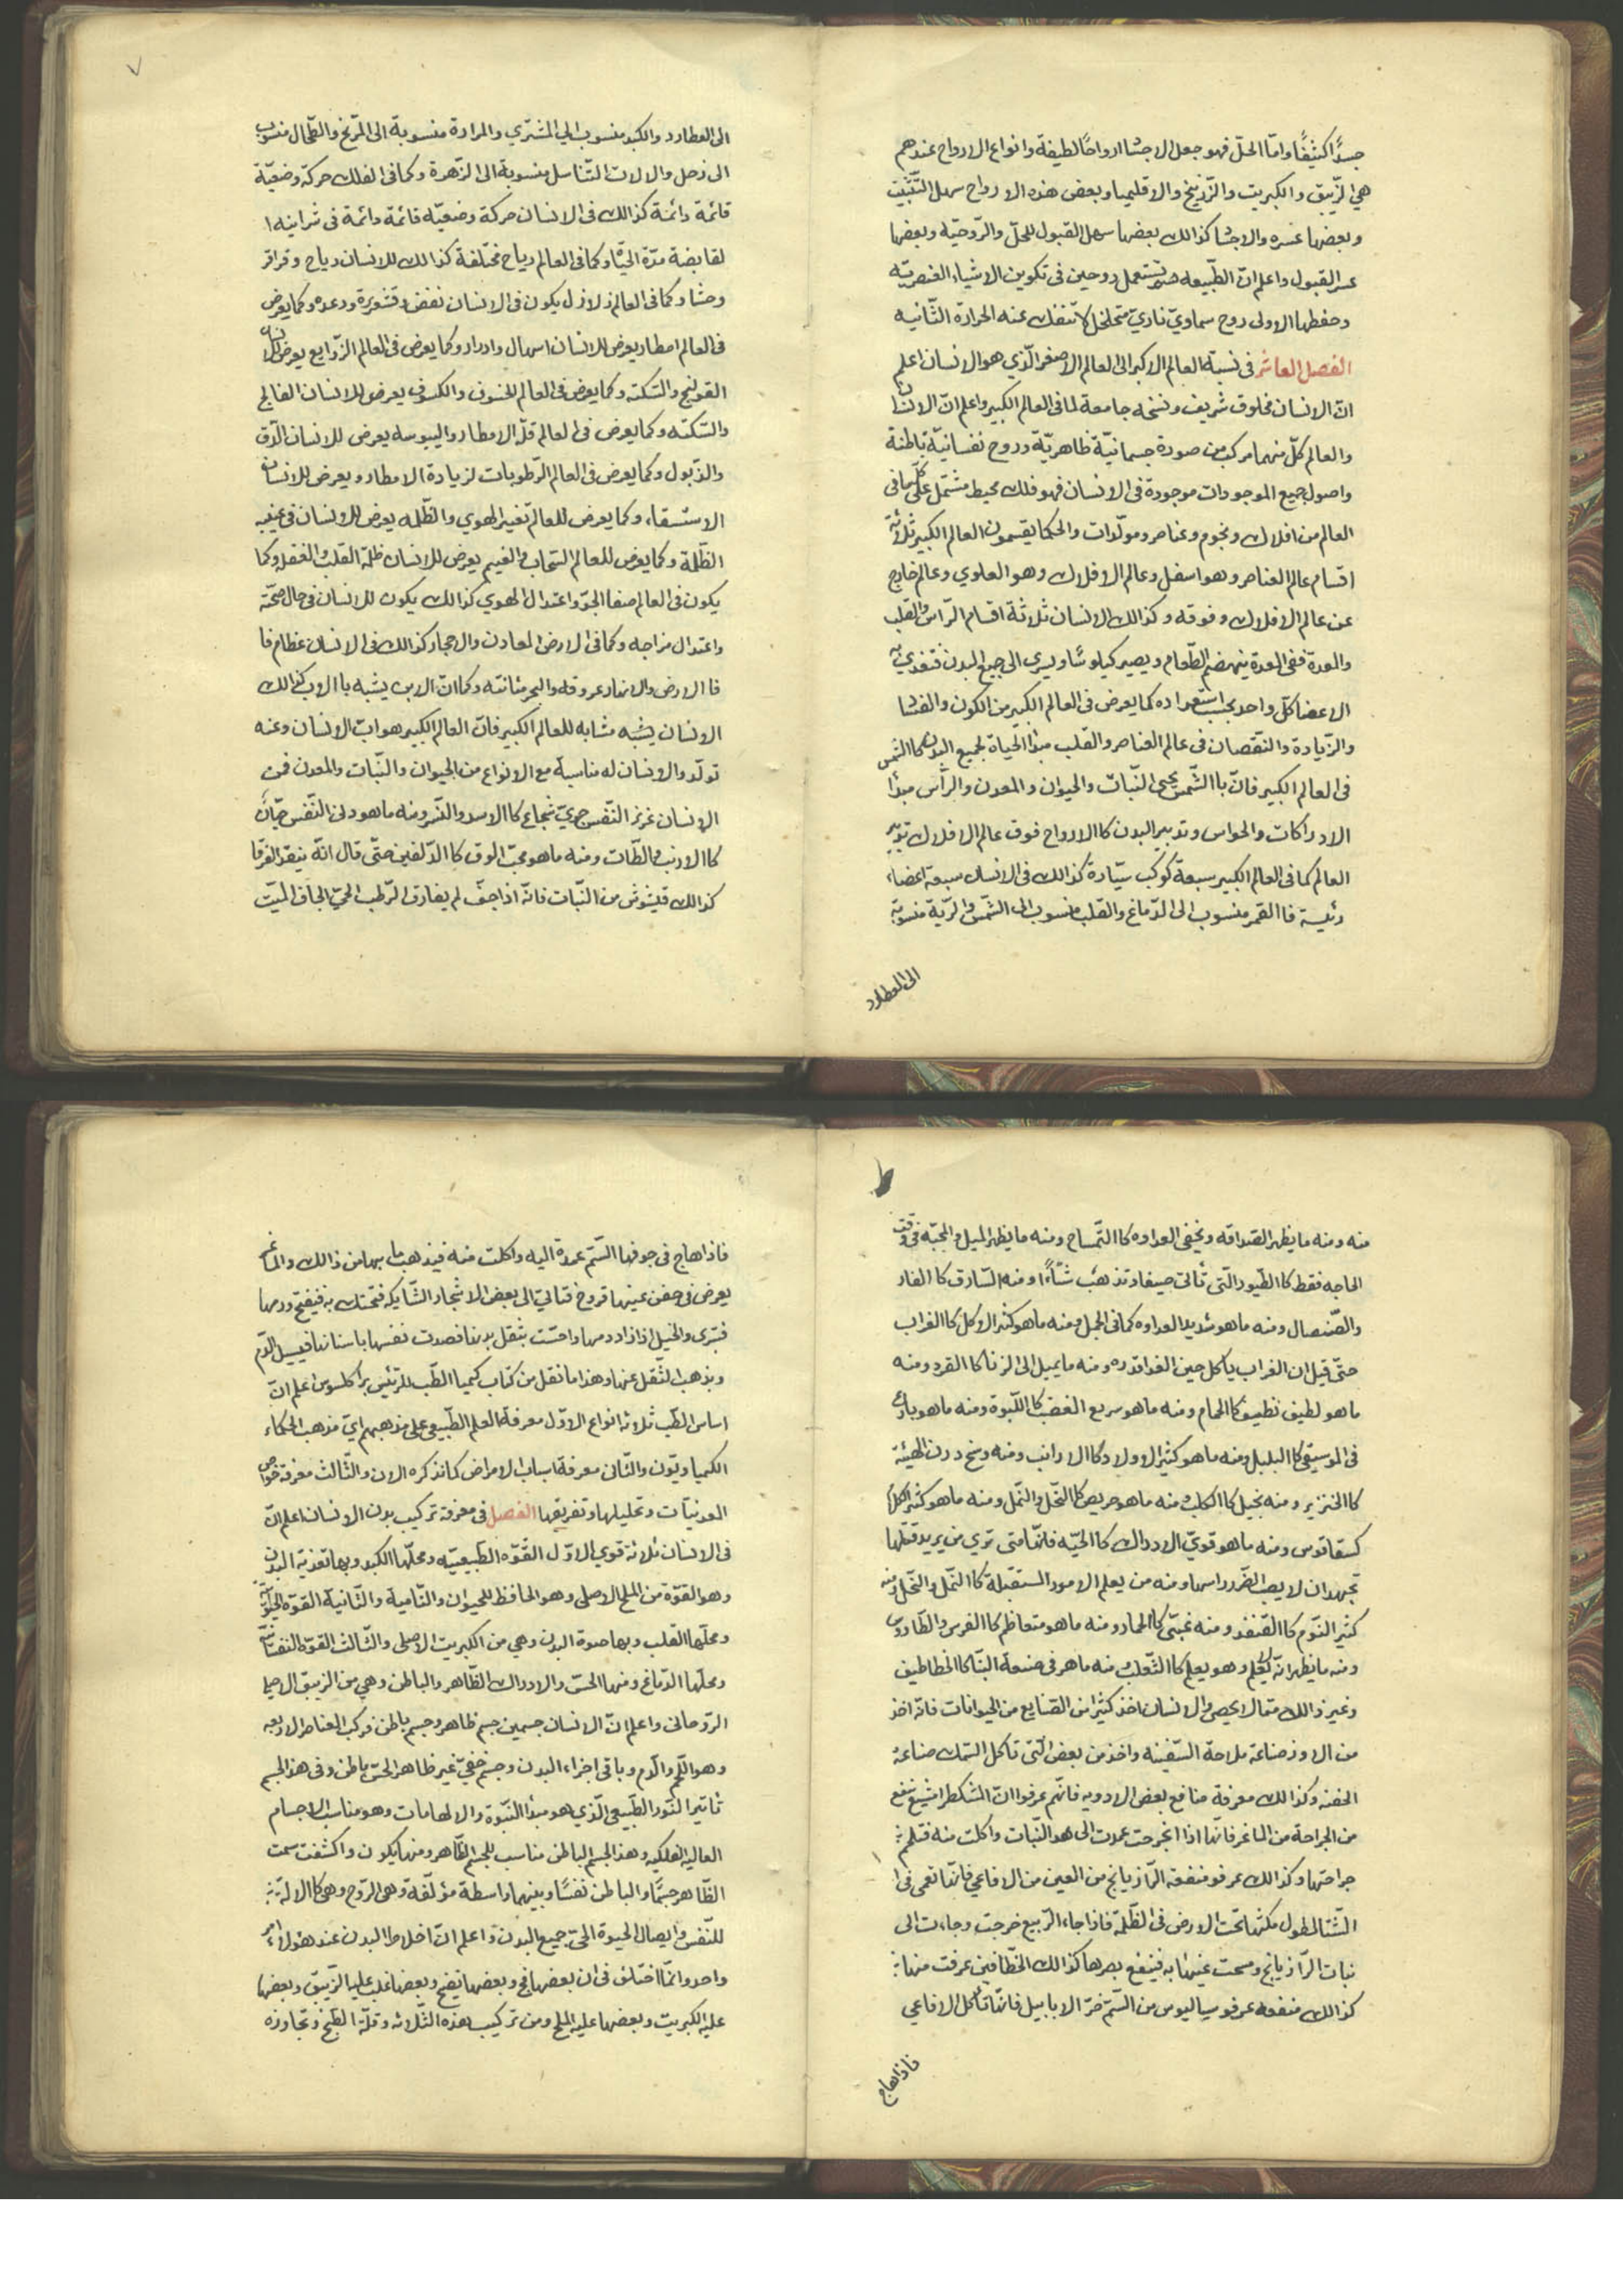 جسدًا كثيفًا واما الحلّ فهو جعل الاجسّا ارواحًا لطيفة وانواع الارواح عندهم
هي الزّيبق والكبريت والزّرنيخ والاقليميا وبعض هذه الارواح سهل التّثبّيت
وبعضها عسره والاجسّا كذالك بعضها سهل القبول للحلّ والرّوحيّه وبعضها
عسر القبول واعلم انّ الطّبيعه تستعمل روحين فى تكوين الاشياء العنصريّه
وحفظها الاولى روح سماويّ ناريّ متخلخل لا تنفك عنه الحرارة الثّانيه
الفصل العاشر فى نسبة العالم الاكبر الى العالم الاصغر الّذي هو الانسان اعلم
انّ الانسان مخلوق شريف ونسخه جامعة لما فى العالم الكبير واعلم انّ الانسان
والعالم كلّ منهما مركب من صورة جسمانيّة ظاهريّة وروح نفسانيّة باطنة
واصول جميع الموجودات موجودة فى الانسان فهو فلك محيط مشتمل على كلّما فى
العالم من افلاك ونجوم وعناصر ومولّدات والحكما يقسمون العالم الكبير ثلاثة
اقسام عالم العناصر وهو اسفل وعالم الافلاك وهو العلوي وعالم خارج
عن عالم الافلاك وفوقه وكذالك الانسان ثلاثة اقسام الرّاس والقلب
والمعدة ففى المعدة ينهضم الطّعام ويصير كيلوسًا ويسري الى جميع البدن فتغدي به
الاعضا كلّ واحد بحسب استعداده كما يعرض فى العالم الكبير من الكون والفسّا
والزّيادة والنّقصان فى عالم العناصر والقلب مبدا الحياة لجميع البدن كما الشّمس
فى العالم الكبير فانّ باالشّمس يحيى النّبات والحيوان والمعدن والرّأس مبدأ
الادراكات والحواس وتدبير البدن كاالارواح فوق عالم الافلاك تدبير
العالم كما فى العالم الكبير سبعة كوكب سيّارة كذالك فى الانسان سبعة اعضاء
رئيسة فاالقمر منسوب الى الدّماغ والقلب منسوب الى الشّمس والرّية منسوبة
الى العطارد
الى العطارد والكبد منسوب الى المشتري والمرارة منسوبة الى المرّيخ والطّحال منسوب
الى زحل والالات التّناسل منسوبة الى الزّهرة وكما فى الفلك حركة وضعيّة
قائمة دائمة كذالك فى الانسان حركة وضعيّه قائمة دائمة فى شرانيه ا
لقابضة مدّة الحيّاة وكما فى العالم رياح مختلفة كذالك للانسان رياح وقراقر
وحشا وكما فى العالم زلازل يكون فى الانسان نفض وقشعريرة ورعده وكما يعرض
فى العالم امطار يعرض للانسان اسهال وادرار وكما يعرض فى العالم الزّوابع يعرض للانسان
القولنج والسّكته وكما يعرض فى العالم الخسوف والكسوف يعرض للانسان الفالج
والسّكته وكما يعرض فى العالم قلّه الامطار واليبوسه يعرض للانسان الدّق
والذّبول وكما يعرض فى العالم الرّطوبات لزيادة الامطار ويعرض للانسان
الاستسقاء وكما يعرض للعالم تغير الهوي والظّلمه يعرض للانسان فى عينيه
الظّلمة وكما يعرض للعالم السّحاب والغيم يعرض للانسان ظلمة القلب والغفله وكما
يكون فى العالم صفا الجوّ واعتدال الهوي كذالك يكون للانسان فى حال صحّته
واعتدال مزاجه وكما فى الارض المعادن والاحجار كذالك فى الانسان عظام فا
فاالارض والانهار عروقه والبحر مثانته وكما انّ الابن يشبه باالاب كذالك
الانسان يشبه مشابه للعالم الكبير فانّ العالم الكبير هو اب الانسان وعنه
تولّد والانسان له مناسبة مع الانواع من الحيوان والنّبات والمعدن فمن
الانسان عزيز النّفس جريّ شجاع كاالاسد والنّسر ومنه ما هو دنى النّفس جبّان
كاالارنب والطّات ومنه ما هو محبّ الوق كاالدّلفين حتّى قال انّه ينقذ الغرقا
كذالك من النّبات فانّه اذا جفّ لم يفارق الرّطب الحيّ الجاف الميّت
منه ومنه ما يظهر الصّداقه ويخفى العداوه كاالتّمساح ومنه ما يظهر الميل والمحبّه فى وقت
الحاجه فقط كاالطّيور الّتى تأتى صيفا وتذهب شتّاءً ومنه السّارق كاالفار
والصّنصال ومنه ما هو شديد العداوه كما فى الجمل ومنه ما هو كثير الاكل كاالغراب
حتّى قيل ان الغراب ياكل حين الغدا قدره ومنه ما يميل الى الزنا كاالقرد ومنه
ما هو لطيف نظيف كاالحمام ومنه ما هو سريع الغضب كاللّبوة ومنه ما هو بارع
فى الموسيقى كاالبلبل ومنه ما هو كثير الاولاد كاالارانب ومنه وسخ درن الهيئة
كاالخنزير ومنه بخيل كاالكلب ومنه ما هو حريص كاالنّحل والنّمل ومنه ما هو كثير الكلام
كسقاتوس ومنه ما هو قويّ الادراك كاالحيّه فانّها متى تري من يريد قتلها
تجهد ان لا يصب الضّرر راسها ومنه من يعلم الامور المستقبلة كاالنّمل والنّحل ومنه
كثير النّوم كاالقنفذ ومنه غبّى كاالحمار ومنه ما هو متعاظم كاالفرس والطّاووس
ومنه ما يظهر انّه لا يعلم وهو يعلم كاالثّعلب ومنه ماهر فى صنعة البنّا كاالخطاطيف
وغير ذالك ممّا لا يحصى والانسان اخذ كثيرا من الصّنايع من الحيوانات فانّه اخذ
من الاوز صناعة ملاحة السّفينه واخذ من بعض الّتى تاكل السّمك صناعة
الحقنه وكذالك معرفة منافع بعض الادويه فانّهم عرفوا انّ المشكطرامشيغ ينفع
من الجراحة من الماغر فانّها اذا انجرحت عمدت الى هذا النّبات واكلت منه فتلحم
جراحتها وكذالك عرفو منفعة الرّازيانج من العين من الافاعي فانّها تعمى فى ا
الشّتا لطول مكثها تحت الارض فى الظّلمة فاذا جاء الرّبيع خرجت وجاءت الى
نبات الرّازيانج ومسحت عينها به فينفع بصرها كذالك الخطّافين عرفت منها
كذالك منفعه عرفو سياليوس من السّم الابابيل فانّها تأكل الافاعي
فاذاهاج
فاذا هاج فى جوفها السّم عمدة اليه واكلت منه فيذهب ما بها من ذالك والماغر
يعرض فى جفن عينها قروح فتاتي الى بعض الاشجار الشّايكة فتحتك به فيفتح ورمها
فتبرى والخيل اذا زاد دمها واحسّت بثقل بدنها فصدت نفسها باسنانها فيسيل الدّم
ويذهب الثّقل عنها وهذا ما نقل من كتاب كميا الطّب للرّئيس براكلسوس اعلم انّ
اساس الطّب ثلاثه انواع الاوّل معرفة العلم الطّبيعي على مذهبهم ايّ مذهب الحكماء
الكمياويّون والثّانى معرفة اسباب الامراض كما نذكره الان والثّالث معرفة خواص
المعدنيّات وتحليلها وتفريقها الفصل فى معرفة تركيب بدن الانسان اعلم انّ
فى الانسان ثلاثة قوي الاوّل القوّه الطّبيعيّه ومحلّها الكبد وبها تغذية البدن
وهو القوّة من الملح الاصلى وهو الحافظ للحيوان والنّامية والثّانية القوّة الحيوانيّة
ومحلّها القلب وبها حيوة البدن وهي من الكبريت الاصلى والثّالث القوّة النفسانيّة
ومحلّها الدّماغ ومنها الحسّ والادراك الظّاهر والباطن وهي من الزيبق الاصلى
الرّوحانى واعلم انّ الانسان جسمين جسم ظاهر وجسم باطن مركب العناصر الاربعه
وهو اللّحم والدّم وباقى اجزاء البدن وجسم خفيّ غير ظاهر الحسّ باطن وفى هذ الجسم
تأثير النّور الطّبيعى الّذي هو مبدأ النّبوّة والالهامات وهو مناسب الاجسام
العاليه الفلكيه وهذ الجسم الباطن مناسب للجسم الظّاهر ومنها يكون واكتفت سمت
الظّاهر جسمًا والباطن نفسًا وبينهما واسطة مؤلّفة وهى الرّوح وهى كاالالة
للنّفس وايصال الحيوة الى جميع البدن واعلم انّ اخلاط البدن عند هؤلاء امر
واحد وانّما اختلف فى ان بعضها فج وبعضها نضج وبعضها غلب عليه الزّيبق وبعضها
عليه الكبريت وبعضها عليه الملح ومن تركيب هذه الثّلاثه وقلّة الطّبخ وتجاوزه